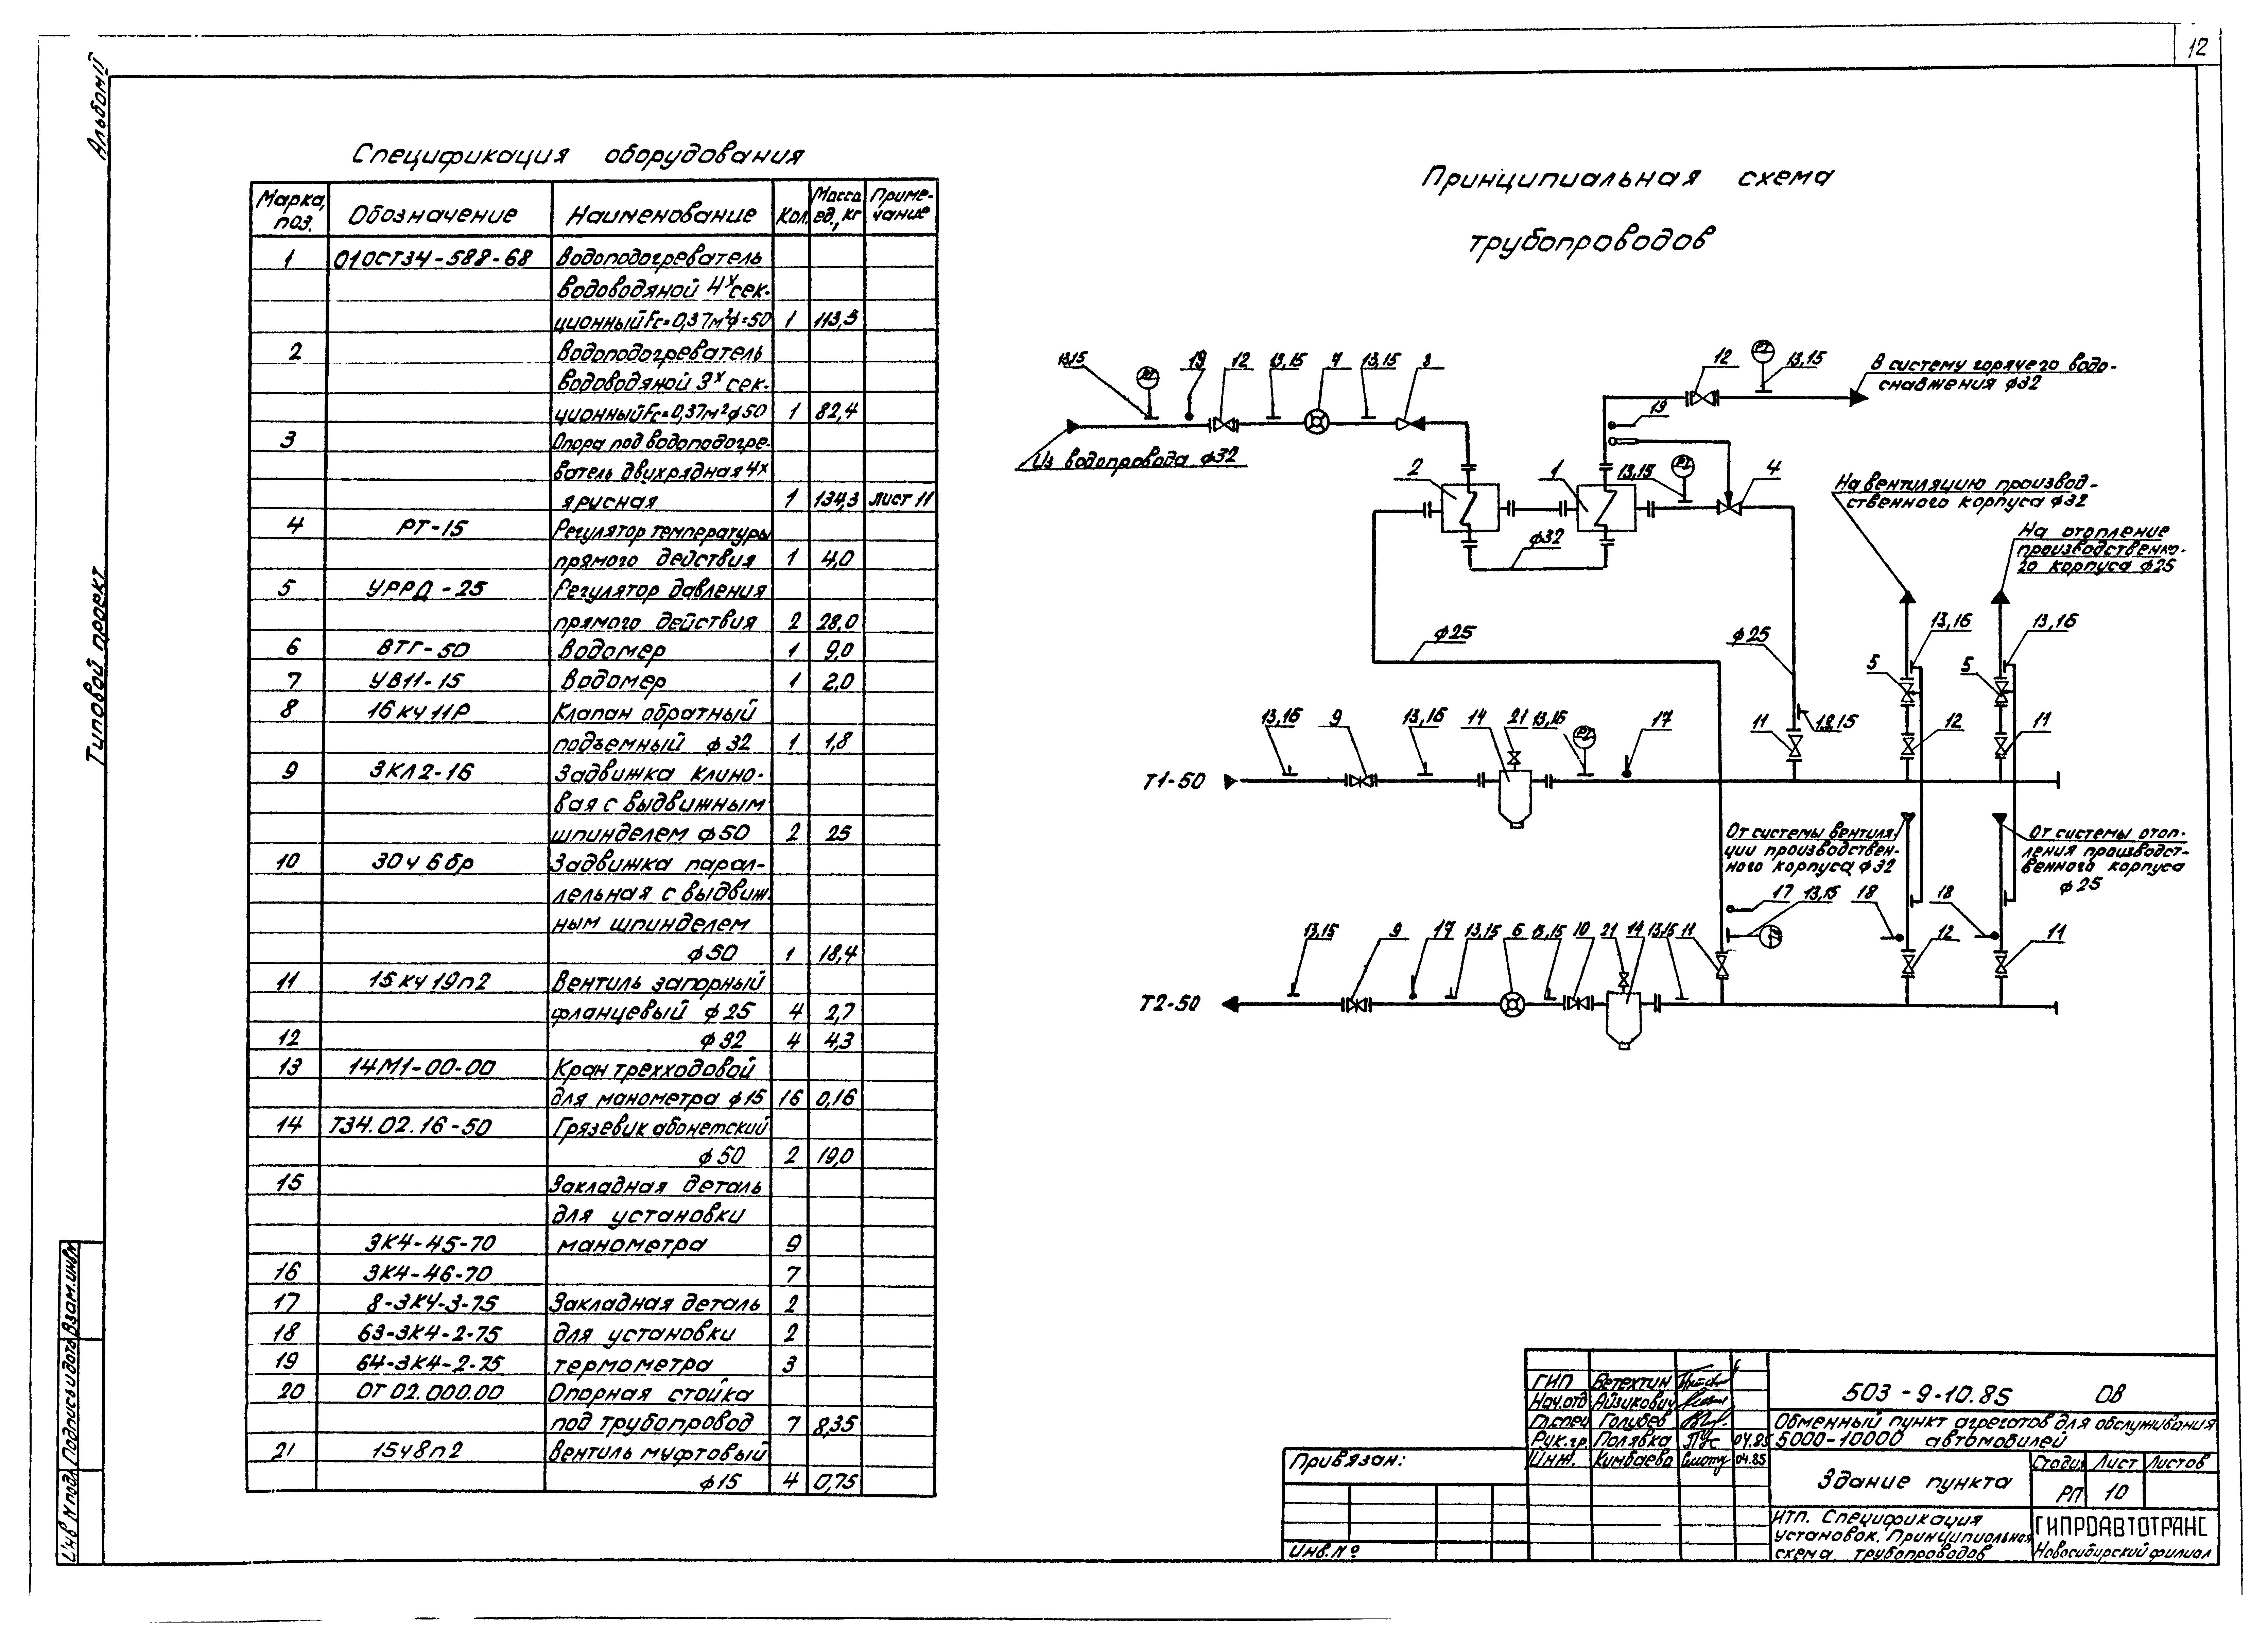 12
Альбом II
Типовой проект
Инв № подл Подпись и дата Взам.инв№
Спецификация оборудования
Марка, поз. Обозначение Наименование Кол. Масса ед., кг Примечание
1 01ОСТ34-588-68 Водоподогреватель
водоводяной 4х сек-
ционный Fс=0,37м² ф=50 1 113,5
2 Водоподогреватель
водоводяной 3х сек-
ционный Fс=0,37м² ф50 1 82,4
3 Опора под водоподогре-
ватель двухрядная 4х
ярусная 1 134,3 лист 11
4 РТ-15 Регулятор температуры
прямого действия 1 4,0
5 УРРД-25 Регулятор давления
прямого действия 2 28,0
6 ВТГ-50 Водомер 1 9,0
7 УВ11-15 Водомер 1 2,0
8 16кч11Р Клапан обратный
подъемный ф32 1 1,8
9 ЗКЛ2-16 Задвижка клино-
вая с выдвижным
шпинделем ф50 2 25
10 30ч6бр Задвижка парал-
лельная с выдвиж-
ным шпинделем
ф50 1 18,4
11 15кч19п2 Вентиль запорный
фланцевый ф25 4 2,7
12 ф32 4 4,3
13 14М1-00-00 Кран трехходовой
для манометра ф15 16 0,16
14 Т34.02.16-50 Грязевик абонетский
ф50 2 19,0
15 Закладная деталь
для установки
ЗК4-45-70 манометра 9
16 ЗК4-46-70 7
17 8-ЗК4-3-75 Закладная деталь 2
18 63-ЗК4-2-75 для установки 2
19 64-ЗК4-2-75 термометра 3
20 ОТ 02.000.00 Опорная стойка
под трубопровод 7 8,35
21 15ч8п2 Вентиль муфтовый
ф15 4 0,75
Принципиальная схема
трубопроводов
13,15 PI 19 12 13,15 7 13,15 8
Из водопровода ф32
12 PI 13,15
В систему горячего водо-
снабжения ф32
19
2 1 13,15 PI 4
ф32
На вентиляцию производ-
ственного корпуса ф32
На отопление
производственно-
го корпуса ф25
ф25 ф25
13,16 13,16
5 5
11 13,15 12 11
13,16 9 13,16 14 21 13,16 PI 17
Т1-50
От системы вентиля-
ции производствен-
ного корпуса ф32
От системы отоп-
ления производст-
венного корпуса
ф25
17 13,15 18 18
13,15 9 17 13,15 6 13,15 10 21 14 13,15 11 12 11
Т2-50
ГИП Ветехтин
Нач.отд Айзикович
Гл.спец Голубев
Рук.гр. Полявка 04.85
Инж. Кимбаева 04.85
503-9-10.85 ОВ
Обменный пункт агрегатов для обслуживания
5000-10000 автомобилей
Здание пункта
Стадия Лист Листов
РП 10
ИТП. Спецификация
установок. Принципиальная
схема трубопроводов
ГИПРОАВТОТРАНС
Новосибирский филиал
Привязан:
Инв.№